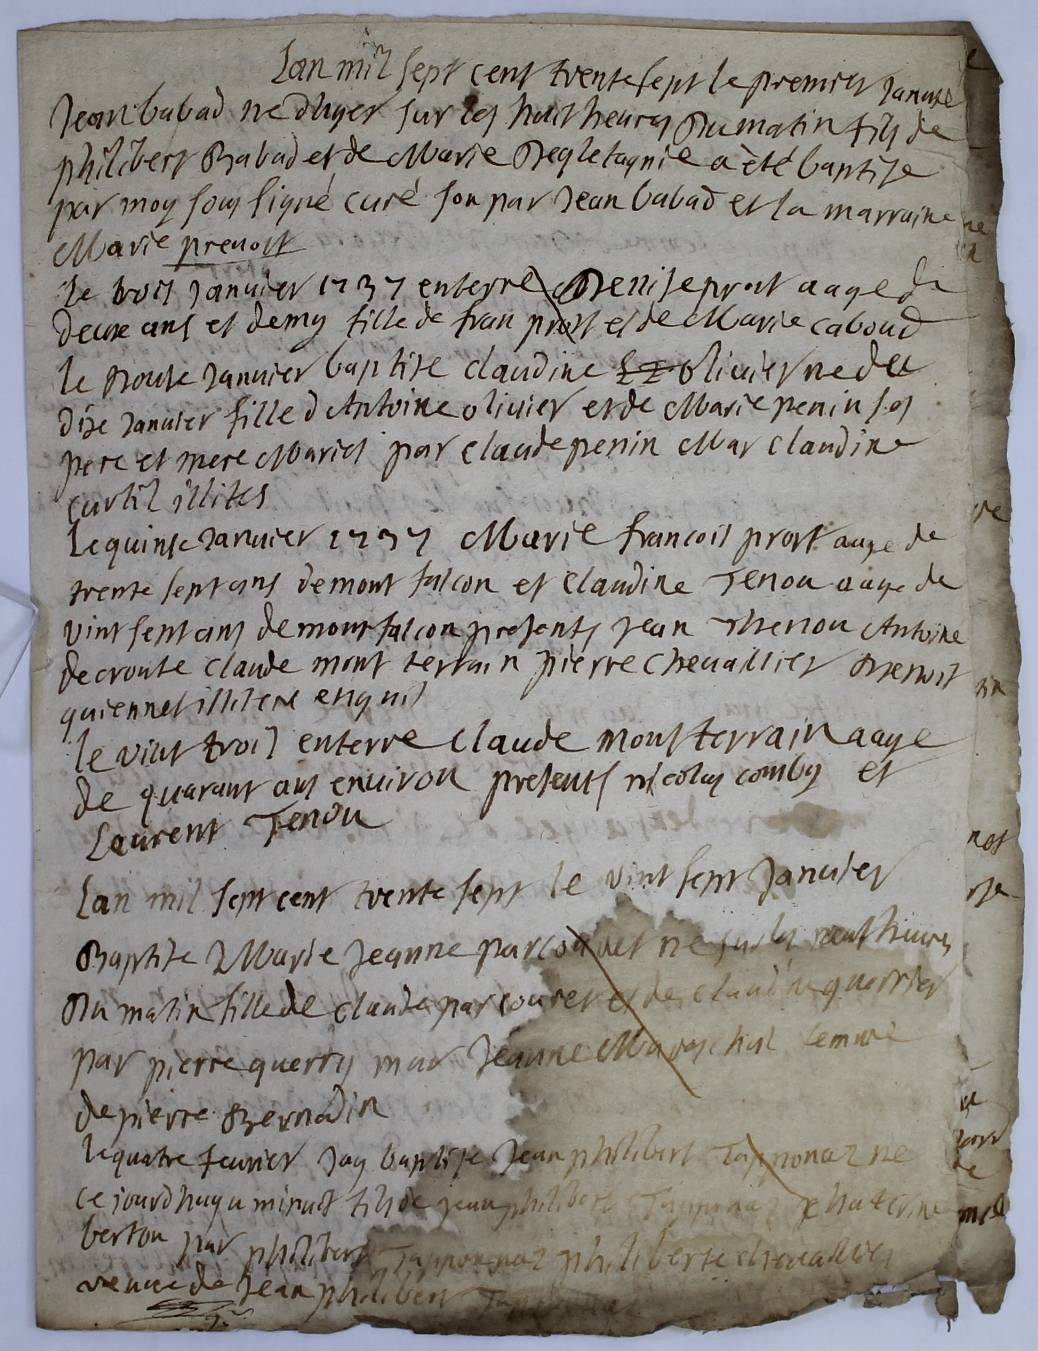 Lan mil sept cent trente sept le premier Janvie
Jean babad ne d'hyer sur les huit heures Du matin fils de
philibert Babad et de Marie a été baptise
par moy sous signé curé son par Jean babad et la marraine
Marie prevost
le trois Janvier 1737 enterre Denise prost aage de
deux ans et demy fille de fran prost et de Marie caboud
le Douse Janvier baptise claudine olivier ne du
dixe Janvier fille d Antoine olivier et de Marie penin ses
pere et mere Maries par claude penin Mar claudine
curtil illites
Le quinse Janvier 1737 Marié francois prost aage de
trente sept ans de mont falcon et Claudine Tenou aage de
vint sept ans de mont falcon presents Jean Thenou Antoine
decroute claude mont terrain pierre chevallier Benoit
quiennet illitere enquis
le vint trois enterre claude mont terrain aage
de quarant ans environ presents nicolas comby et
Laurent Tenou
Lan mil sept cent trente sept le vint sept Janvier
Baptise Marie Jeanne ne sur les neuf heures
Du matin fille de claude et de claudine querrier
par pierre querry mar Jeanne Mareschal femme
de pierre Bernadin
le quatre fevrier Jay baptise Jean philibert Tapponaz ne
ce jourdhuy a minuct fils de jean philibert Tapponaz
berton par philibert Tapponnaz philiberte chevallier
veuve de Jean philibert